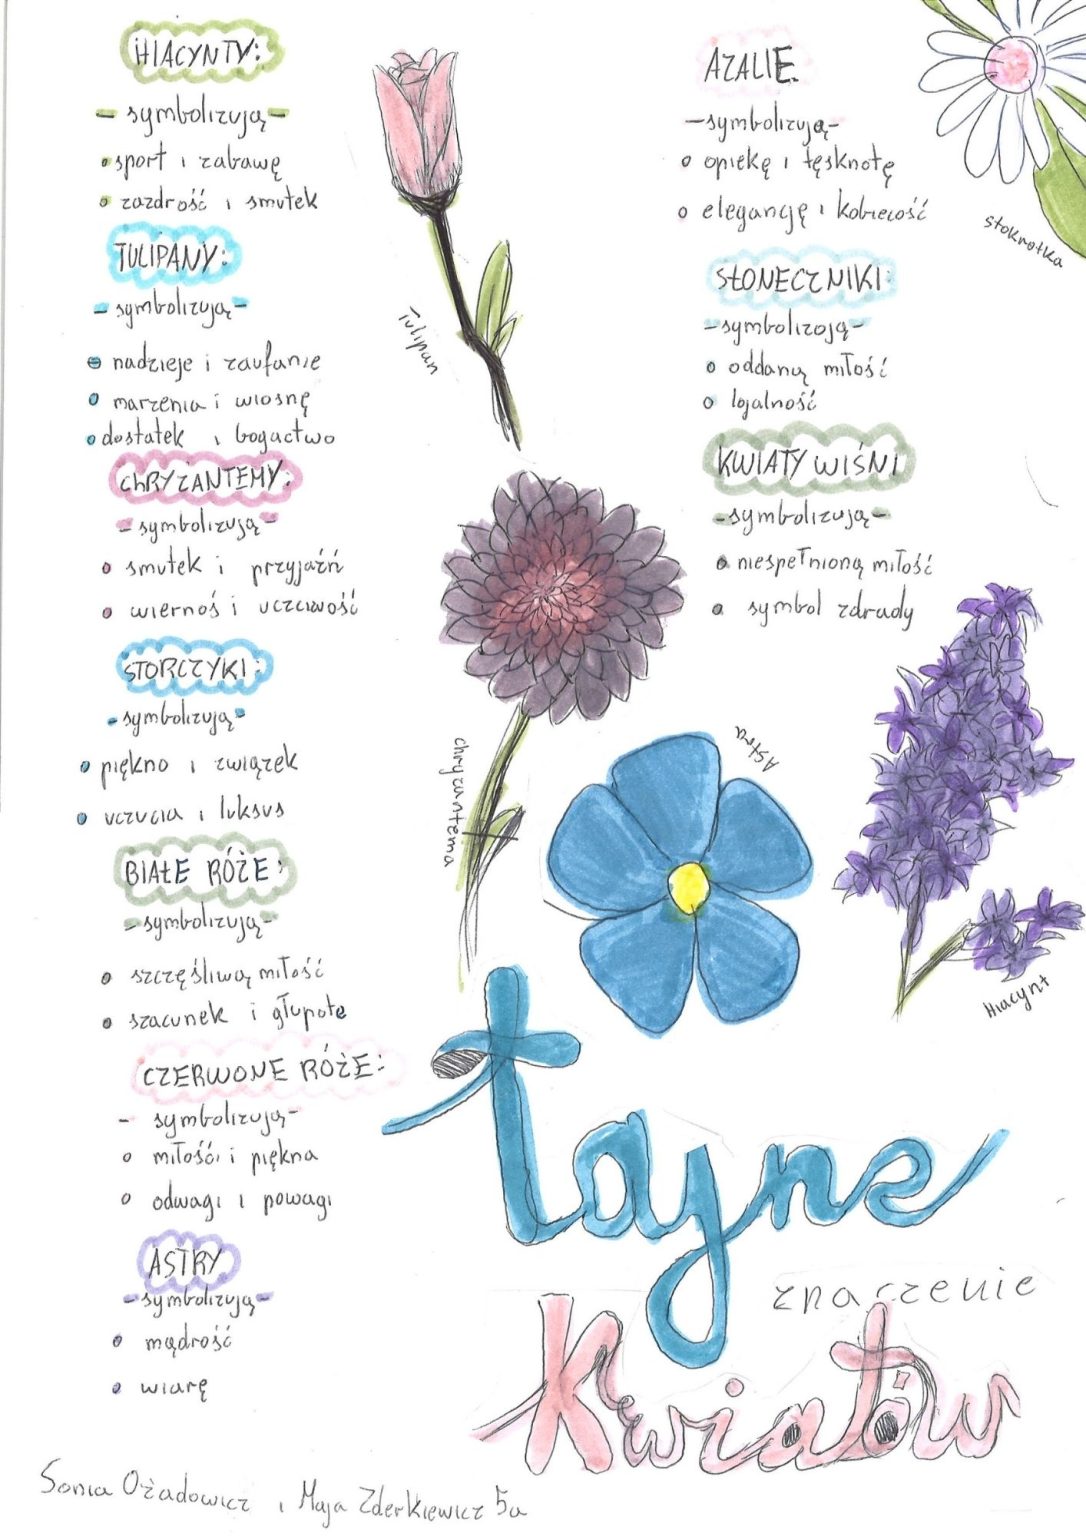 HIACYNTY:
- symbolizują -
sport i zabawę
zazdrość i smutek
TULIPANY:
- symbolizują -
nadzieje i zaufanie
marzenia i wiosnę
dostatek i bogactwo
ChRYZANTEMY:
- symbolizują -
smutek i przyjaźń
wiernoś i uczciwość
STORCZYKI:
- symbolizują -
piękno i związek
uczucia i luksus
BIAŁE RÓŻE:
- symbolizują -
szczęśliwą miłość
szacunek i głupotę
CZERWONE RÓŻE:
- symbolizują -
miłości i piękna
odwagi i powagi
ASTRY
- symbolizują -
mądrość
wiarę
Tulipan
chryzantema
Astra
Hiacynt
stokrotka
AZALIE
- symbolizują -
opiekę i tęsknotę
elegancję i kobiecość
SŁONECZNIKI:
- symbolizoją -
oddaną miłość
lojalność
KWIATY WIŚNI
- symbolizują -
niespełnioną miłość
symbol zdrady
tajne
znaczenie
Kwiatów
Sonia Ożadowicz i Maja Zderkiewicz 5a